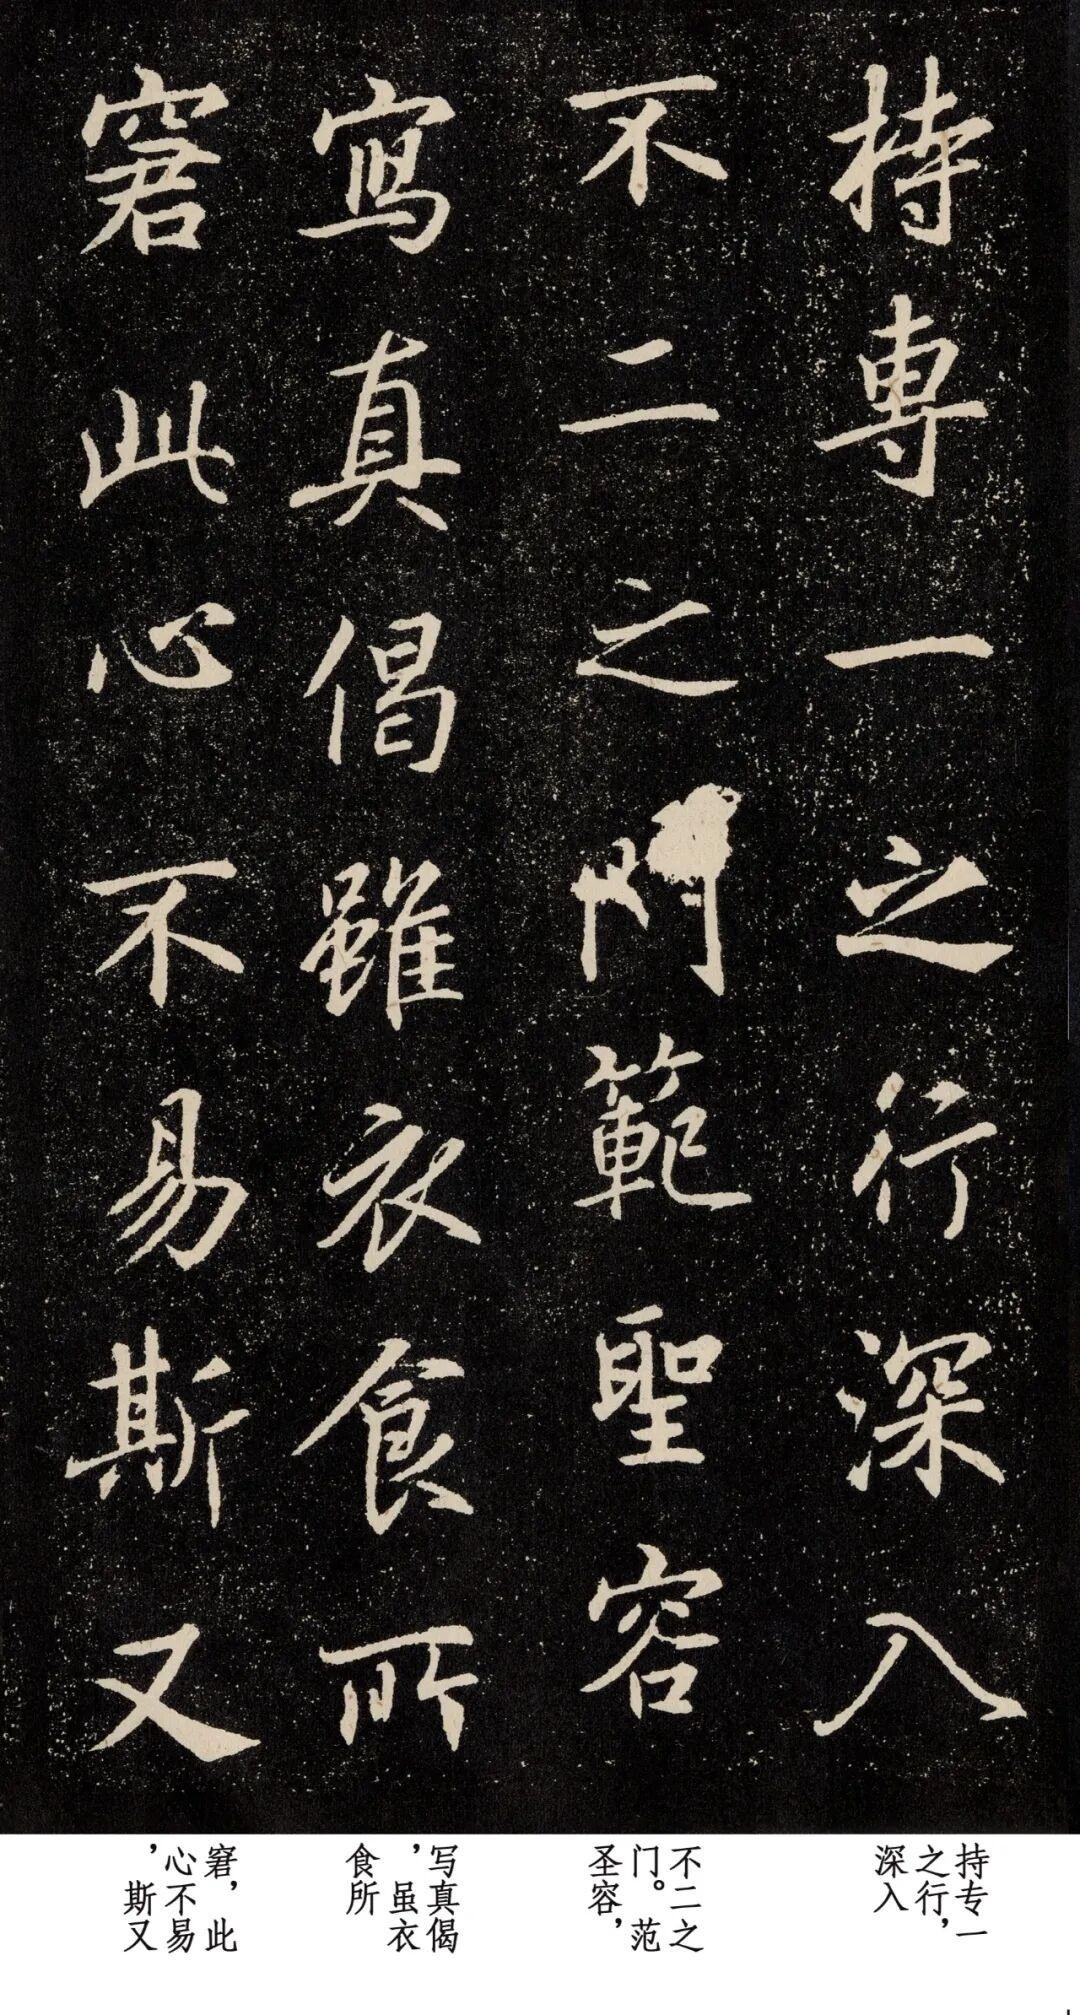 持專一之行深入
不二之門範聖容
寫真偈雖衣食所
窘此心不易斯又
持专一
之行，
深入
不二之
门。范
圣容，
写真偈
，虽衣
食所
窘，此
心不易
，斯又